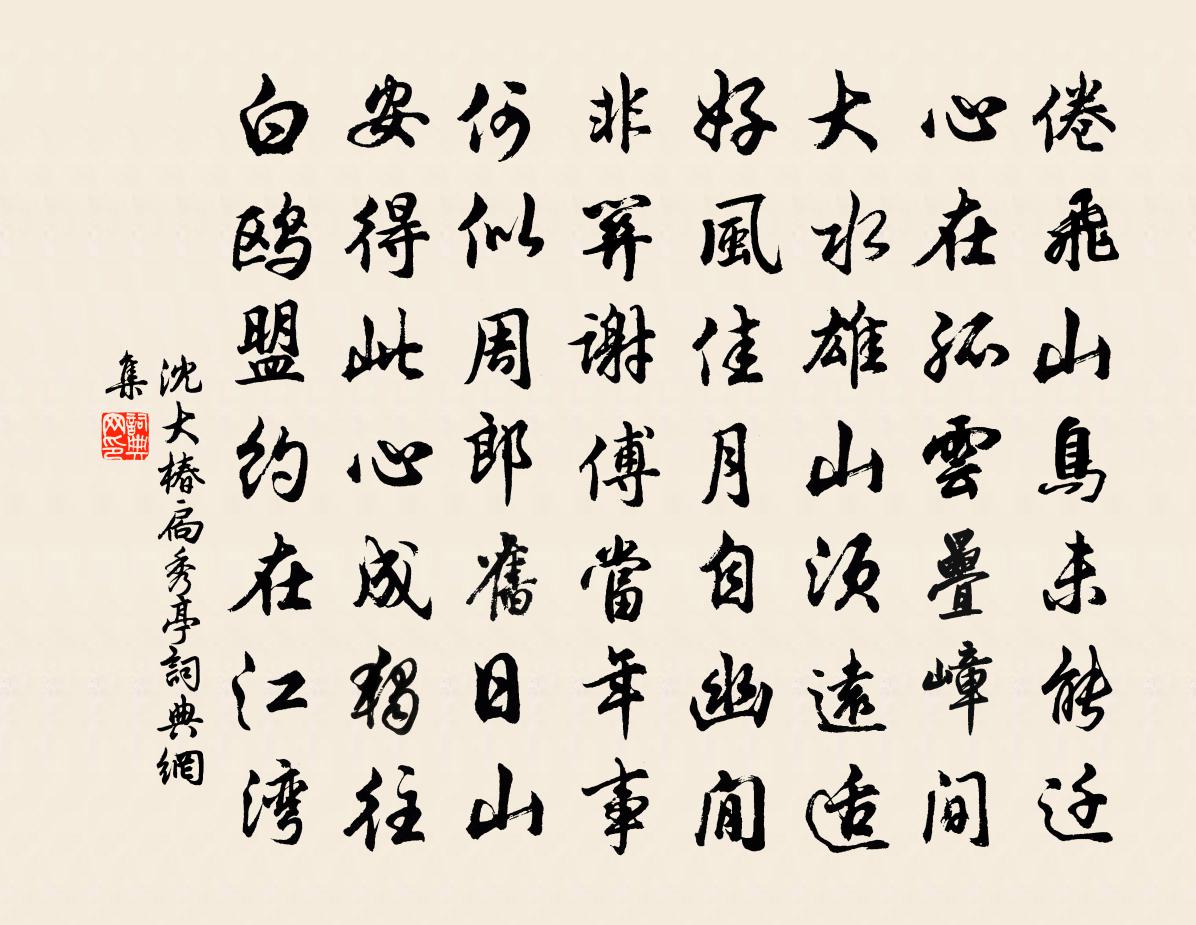 倦飛山鳥未能还
心在孤雲疊嶂間
大水雄山須遠适
好風佳月自幽閒
非關謝傅當年事
何似周郎舊日山
安得此心成獨往
白鸥盟約在江湾
沈大椿扃秀亭詞典網
集
詞典
网印